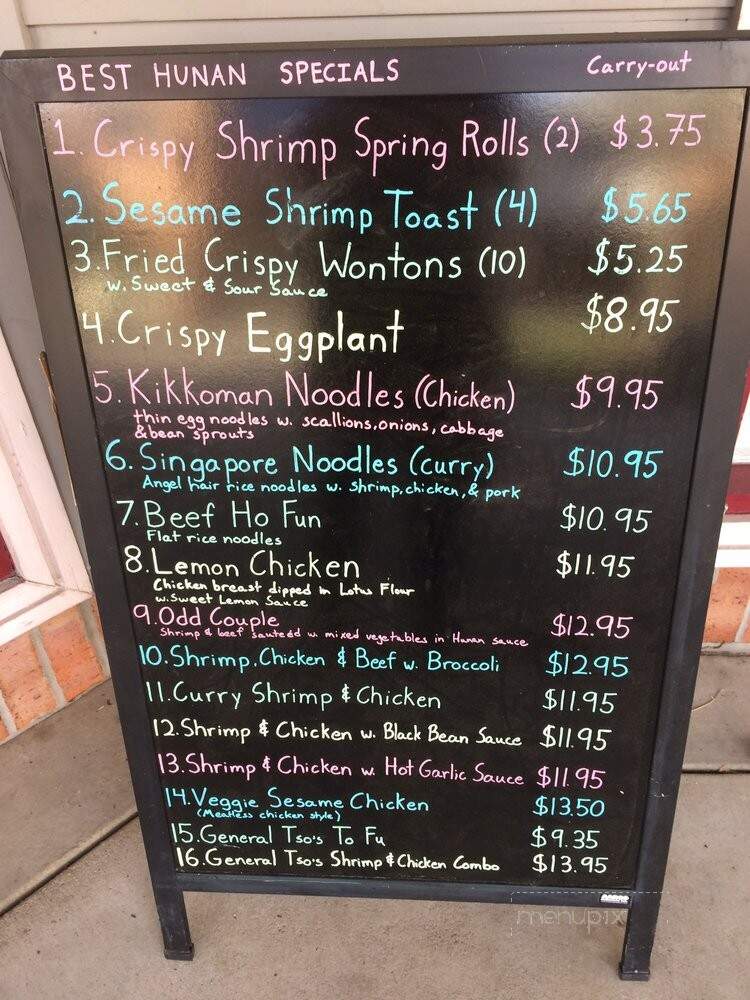 BEST HUNAN SPECIALS Carry-out
1. Crispy Shrimp Spring Rolls (2) $3.75
2. Sesame Shrimp Toast (4) $5.65
3. Fried Crispy Wontons (10) $5.25
w. Sweet & Sour Sauce
4. Crispy Eggplant $8.95
5. Kikkoman Noodles (Chicken) $9.95
thin egg noodles w. scallions, onions, cabbage
& bean sprouts
6. Singapore Noodles (curry) $10.95
Angel hair rice noodles w. shrimp, chicken, & pork
7. Beef Ho Fun $10.95
Flat rice noodles
8. Lemon Chicken $11.95
Chicken breast dipped in Lotus Flour
w. Sweet Lemon Sauce
9. Odd Couple $12.95
Shrimp & beef sautedd w. mixed vegetables in Hunan sauce
10. Shrimp, Chicken & Beef w. Broccoli $12.95
11. Curry Shrimp & Chicken $11.95
12. Shrimp & Chicken w. Black Bean Sauce $11.95
13. Shrimp & Chicken w. Hot Garlic Sauce $11.95
14. Veggie Sesame Chicken $13.50
(Meatless chicken style)
15. General Tso's To Fu $9.35
16. General Tso's Shrimp & Chicken Combo $13.95
menupix